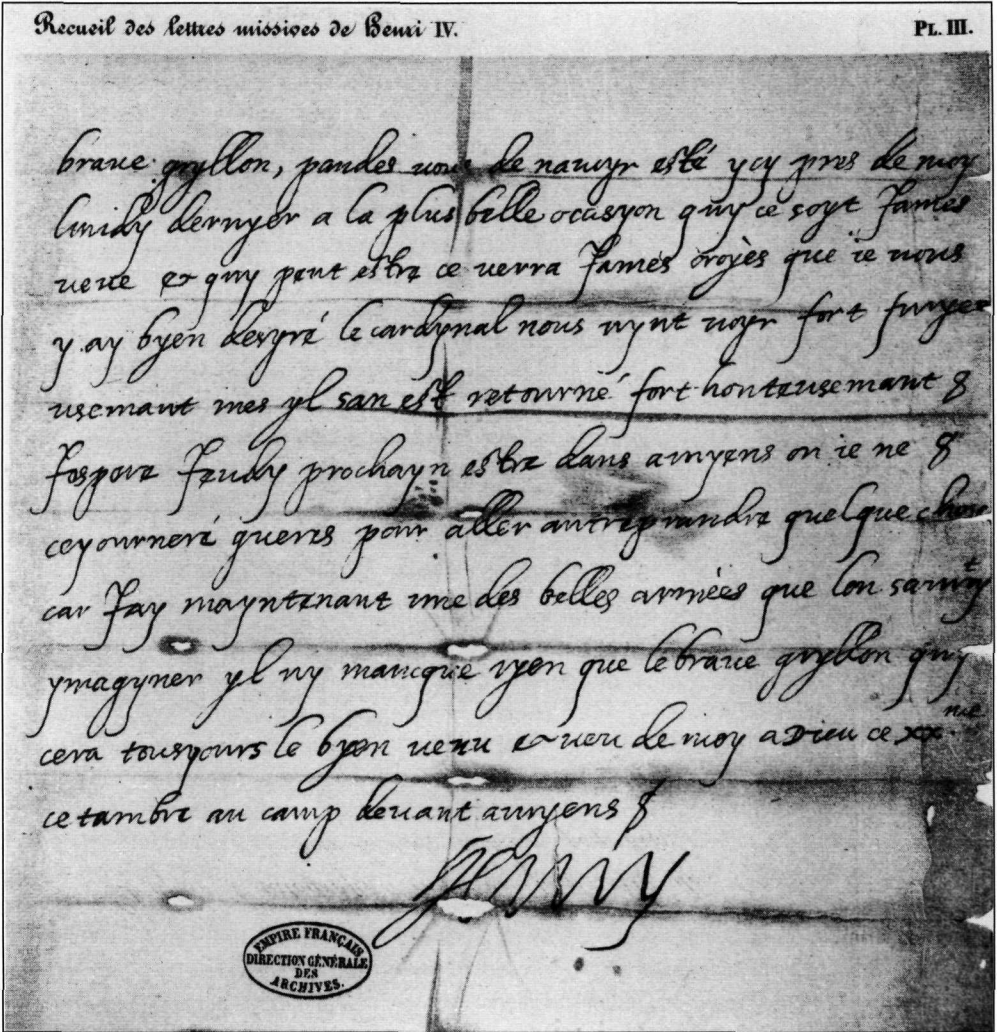 Recueil des lettres missives de Henri IV. PL. III.
brave gryllon, pandes vous de navoyr esté ycy pres de moy
lundy dernyer a la plus belle ocasyon quy ce soyt James
veue & quy peut estre ce verra James croyès que ie vous
y ay byen desyré le cardynal nous vynt voyr fort furyeu
usemant mes yl san est retourné fort honteusemant
Jespere Jeudy prochayn estre dans amyens ou ie ne
ceyourneré gueres pour aller antreprandre quelque chose
car Jay mayntenant une des belles armées que lon sauroyt
ymagyner yl ny mancque ryen que le brave gryllon quy
cera tousyours le byen venu & veu de moy a Dieu ce xx.me
cetambre au camp devant amyens
Henry
EMPIRE FRANÇAIS
DIRECTION GÉNÉRALE
DES
ARCHIVES.